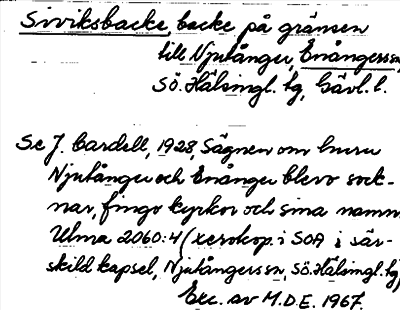 Siviksbacke, backe på gränsen
till Njutånger, Enångerssn,
Sö. Hälsingl. tg, Gävl. l.
Se J. Cardell, 1928, Sägnen om huru
Njutånger och Enånger blevo sock-
nar, fingo kyrkor och sina namn.
Ulma 2060:4 (xerokop. i SOA i sär-
skild kapsel, Njutångerssn, Sö. Hälsingl. tg)
Exc. av M.D.E. 1967.